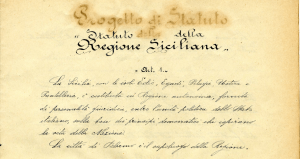 Progetto di Statuto
"Statuto della
Regione Siciliana"
Art. 1.
La Sicilia, con le isole Eolie, Egadi, Pelagie, Ustica e
Pantelleria, è costituita in Regione autonoma, fornita
di personalità giuridica, entro l'unità politica dello Stato
italiano, sulla base dei principi democratici che ispirano
la vita della Nazione.
La città di Palermo è il capoluogo della Regione.